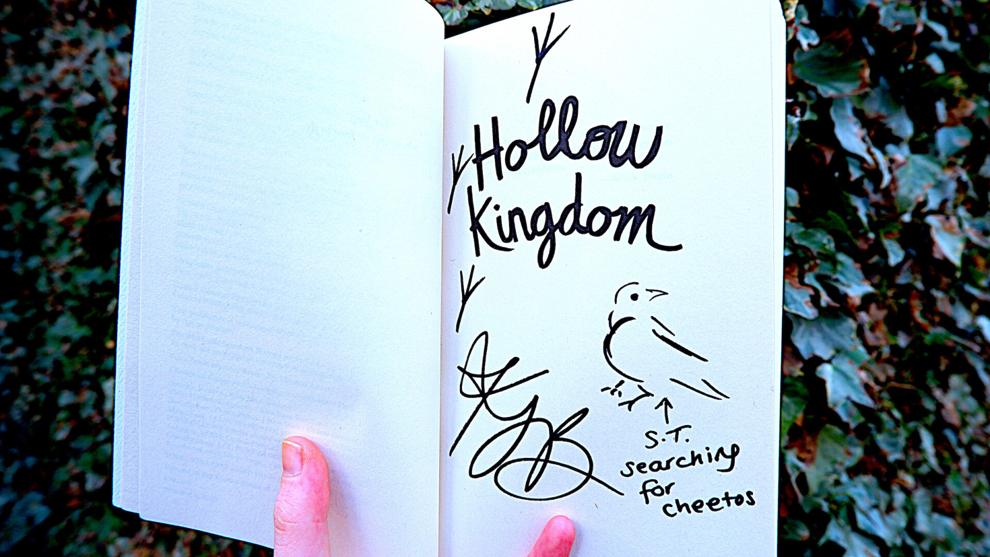 Hollow
Kingdom
S.T.
searching
for
cheetos